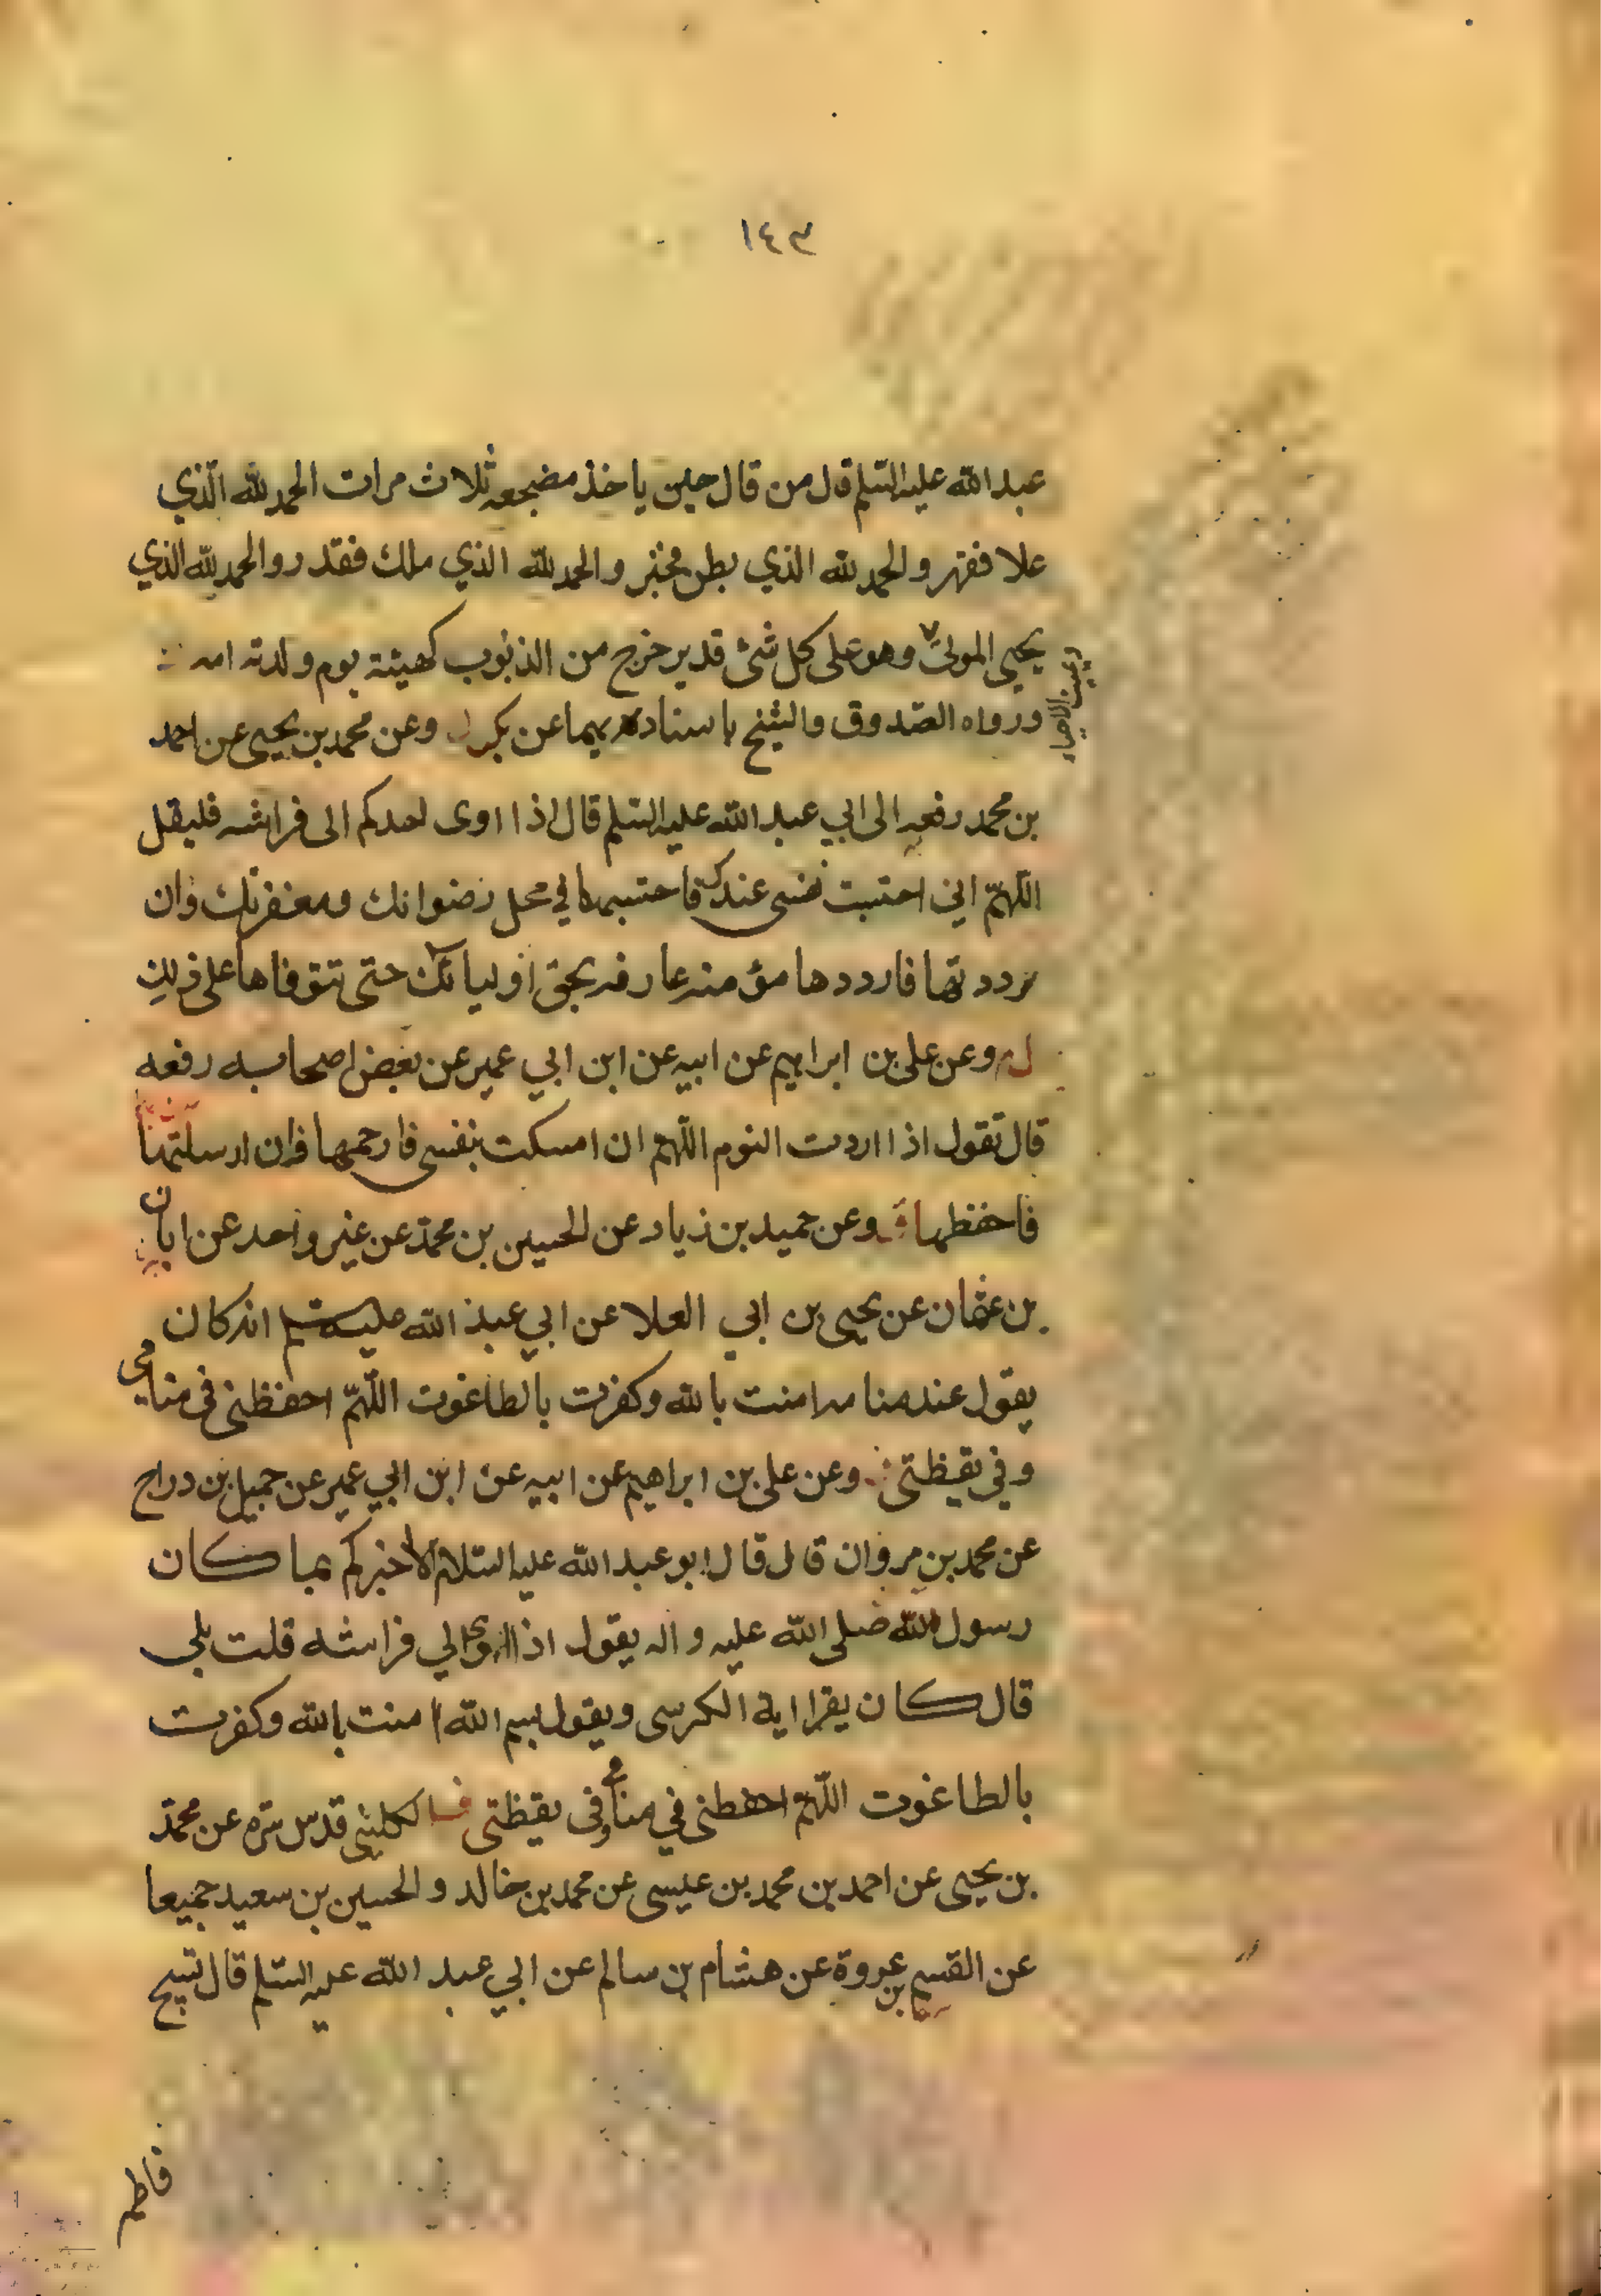 ١٤٣
عبد الله عليه السلم قال من قال حين ياخذ مضجعه ثلاث مرات الحمد لله الذي
علا فقهر والحمد لله الذي بطن فخبر والحمد لله الذي ملك فقدر والحمد لله الذي
يحيي الموتى ويميت الاحياء وهو على كل شئ قدير خرج من الذنوب كهيئة يوم ولدته امه
ورواه الصدوق والشيخ باسناديهما عن بكر وعن محمد بن يحيى عن احمد
بن محمد رفعه الى ابي عبد الله عليه السلم قال اذا اوى احدكم الى فراشه فليقل
اللهم اني احتبست نفسي عندك فاحتبسها في محل رضوانك ومغفرتك وان
رددتها فارددها مؤمنه عارفه بحق اوليائك حتى تتوفاها على ذلك
وعن علي بن ابراهيم عن ابيه عن ابن ابي عمير عن بعض اصحابه رفعه
قال تقول اذا اردت النوم اللهم ان امسكت بنفسي فارحمها فان ارسلتها
فاحفظها وعن حميد بن زياد عن الحسين بن محمد عن غير واحد عن ابان
بن عثمان عن يحيى بن ابي العلا عن ابي عبد الله عليه السلم انه كان
يقول عند منامه امنت بالله وكفرت بالطاغوت اللهم احفظني في منامي
وفي يقظتي وعن علي بن ابراهيم عن ابيه عن ابن ابي عمير عن جميل بن دراج
عن محمد بن مروان قال قال ابو عبد الله عليه السلام الا اخبركم بما كان
رسول الله صلى الله عليه واله يقول اذا اوى الي فراشه قلت بلى
قال كان يقرا اية الكرسي ويقول بسم الله امنت بالله وكفرت
بالطاغوت اللهم احفظني في منامي وفي يقظتي الكليني قدس سره عن محمد
بن يحيى عن احمد بن محمد بن عيسى عن محمد بن خالد والحسين بن سعيد جميعا
عن القسم بن عروة عن هشام بن سالم عن ابي عبد الله عليه السلم قال تسبيح
فاطمه